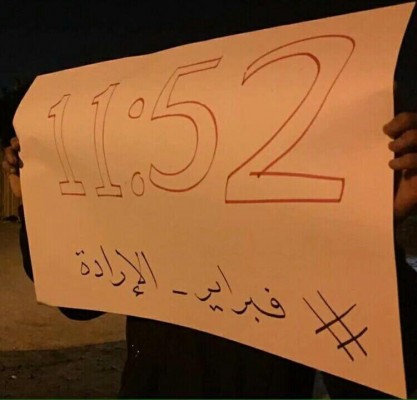 11:52
#فبراير_الإرادة